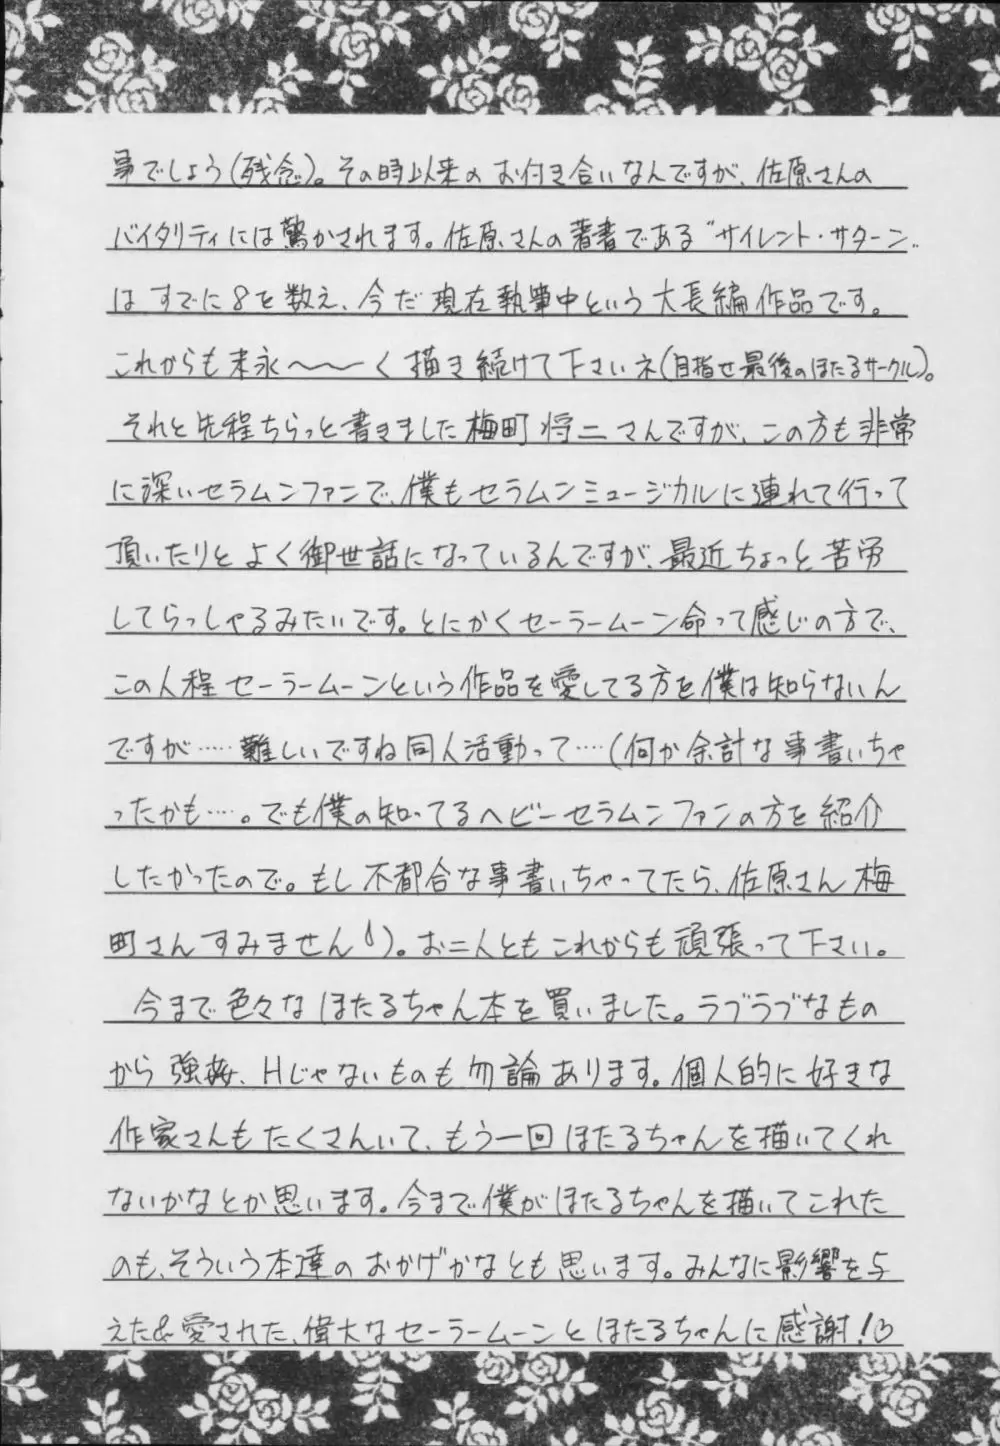 事でしょう(残念)。その時以来のお付き合いなんですが、佐原さんの
バイタリティには驚かされます。佐原さんの著書である"サイレント・サターン"
はすでに8を数え、今だ現在執筆中という大長編作品です。
これからも末永〜〜く描き続けて下さいネ(目指せ最後のほたるサークル)。
それと先程ちらっと書きました梅町将二さんですが、この方も非常
に深いセラムンファンで、僕もセラムンミュージカルに連れて行って
頂いたりとよく御世話になっているんですが、最近ちょっと苦労
してらっしゃるみたいです。とにかくセーラームーン命って感じの方で、
この人程セーラームーンという作品を愛してる方を僕は知らないん
ですが……難しいですね同人活動って…(何か余計な事書いちゃ
ったかも…。でも僕の知ってるヘビーセラムンファンの方を紹介
したかったので。もし不都合な事書いちゃってたら、佐原さん梅
町さんすみません)。お二人ともこれからも頑張って下さい。
今まで色々なほたるちゃん本を買いました。ラブラブなもの
から強姦、Hじゃないものも勿論あります。個人的に好きな
作家さんもたくさんいて、もう一回ほたるちゃんを描いてくれ
ないかなとか思います。今まで僕がほたるちゃんを描いてこれた
のも、そういう本達のおかげかなとも思います。みんなに影響を与
えた&愛された、偉大なセーラームーンとほたるちゃんに感謝!♡